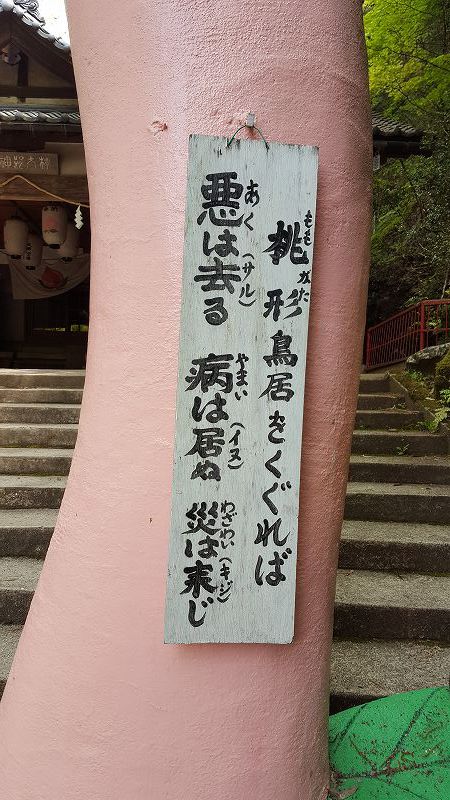 桃形鳥居をくぐれば
ももがた
悪は去る 病は居ぬ 災は来じ
あく(サル) やまい(イヌ) わざわい(キジ)